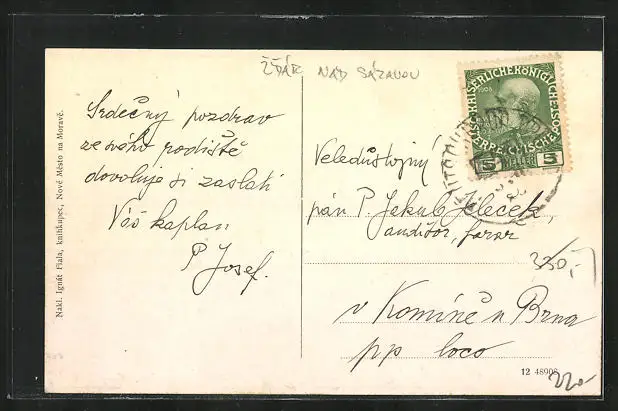 ŽĎÁR NAD SÁZAVOU
Srdečný pozdrav
ze svého rodiště
dovoluje si zaslati
Váš kaplan
P Josef.
Nakl. Ignát Fiala, knihkupec, Nové Město na Moravě.
KAISERLICHE KÖNIGLICHE
5 HELLER 5
Veledůstojný
pán P. Jakub Jeleček,
auditor, farář
v Komíně u Brna
pp loco
350,-
12 48908
220-